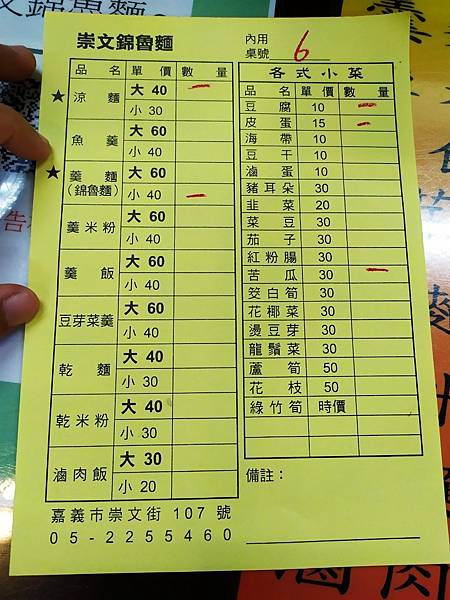 崇文錦魯麵
內用
桌號 6
品名 單價 數量
★ 涼麵 大 40 一
小 30
魚羹 大 60
小 40
★ 羹麵(錦魯麵) 大 60
小 40 一
羹米粉 大 60
小 40
羹飯 大 60
小 40
豆芽菜羹 大 60
小 40
乾麵 大 40
小 30
乾米粉 大 40
小 30
滷肉飯 大 30
小 20
各式小菜
品名 單價 數量
豆腐 10 一
皮蛋 15 一
海帶 10
豆干 10
滷蛋 10
豬耳朵 30
韭菜 20
菜豆 30
茄子 30
紅粉腸 30
苦瓜 30 一
筊白筍 30
花椰菜 30
燙豆芽 30
龍鬚菜 30
蘆筍 50
花枝 50
綠竹筍 時價
備註：
嘉義市崇文街 107 號
05-2255460
滷肉